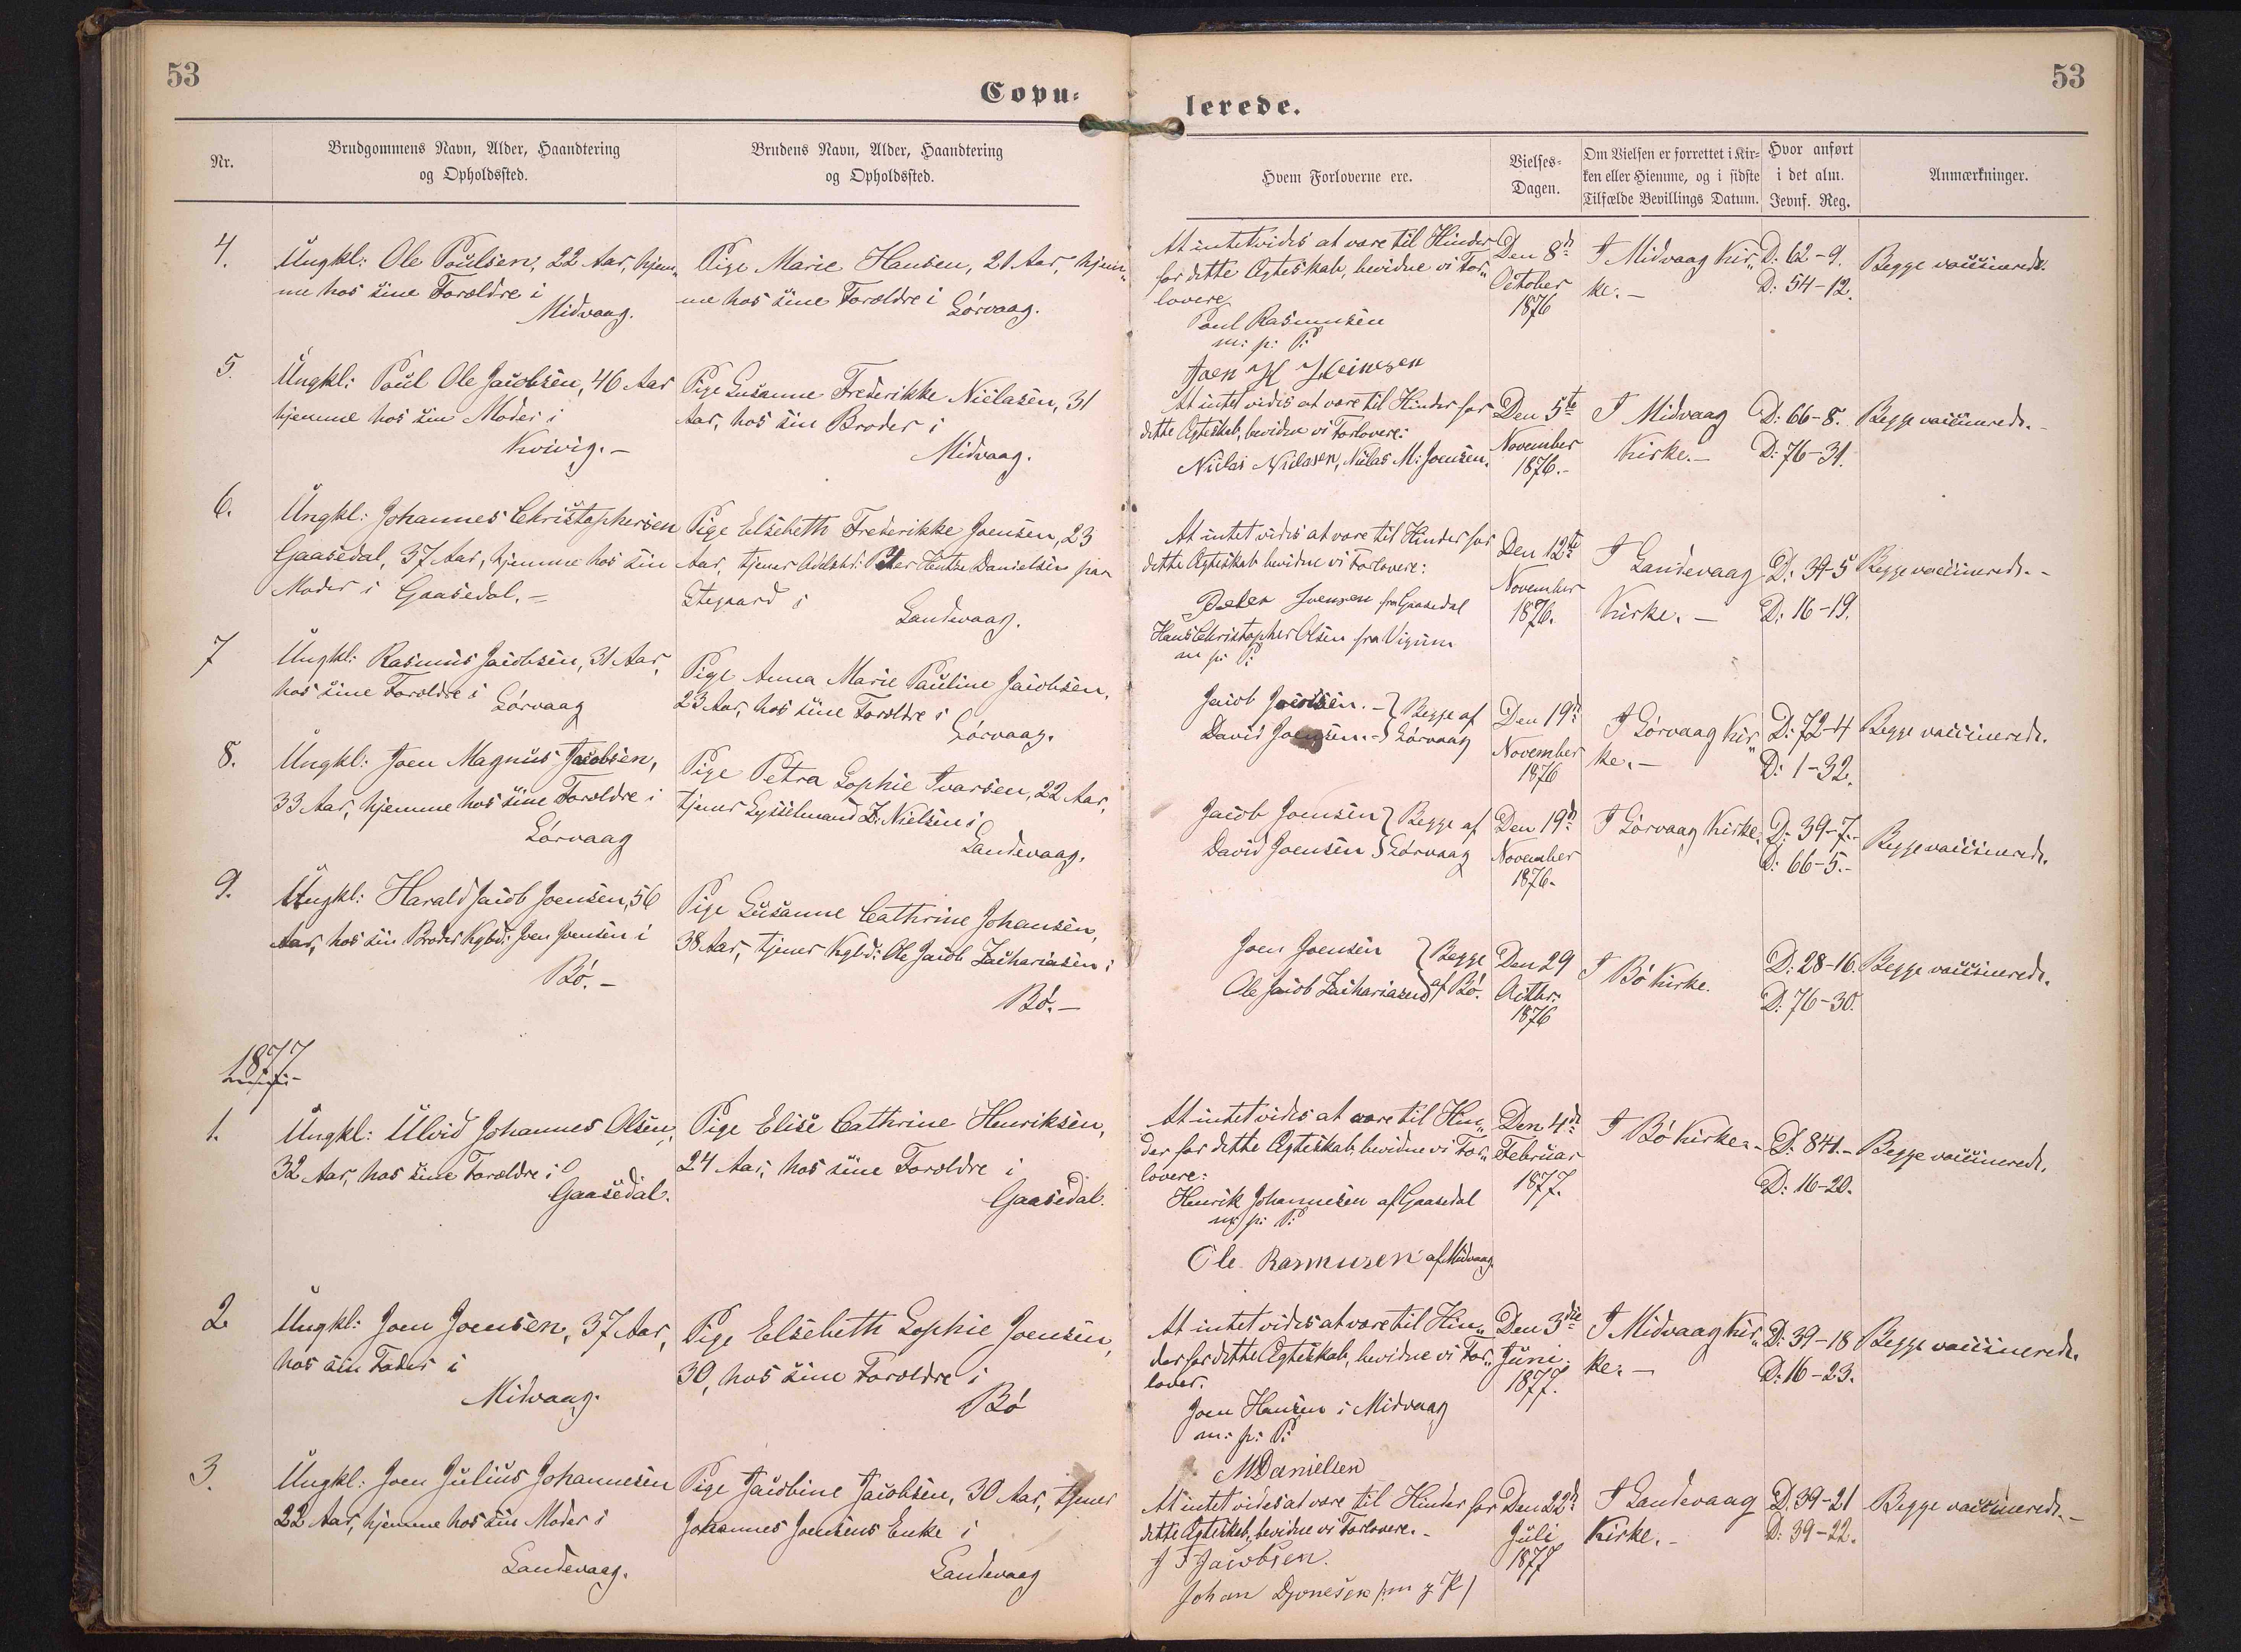 53
53
Copu=
lerede.
Nr.
Brudgommens Navn, Alder, Haandtering
og Opholdssted.
Brudens Navn, Alder, Haandtering
og Opholdssted.
Hvem Forloverne ere.
Vielses-
Dagen.
Om Vielsen er forrettet i Kir-
ken eller Hiemme, og i sidste
Tilfælde Bevillings Datum.
Hvor anført
i det alm.
Jevnf. Reg.
Anmærkninger.
4.
Ungkl: Ole Poulsen, 22 Aar, hjem„
me hos sine Forældre i
Midvaag.
Pige Marie Hansen, 21 Aar, hjem„
me hos sine Forældre i
Sørvaag.
At intet vides at være til Hinder
for dette Ægteskab, bevidne vi For„
lovere
Poul Rasmussen
m: p: P:
Joen H Heinesen
Den 8de
October
1876
I Midvaag Kir„
ke. -
D: 62-9.
D: 54-12.
Begge vaccinerede.
5.
Ungkl: Poul Ole Jacobsen, 46 Aar
hjemme hos sin Moder i
Kvivig. -
Pige Susanne Frederikke Niclasen, 31
Aar, hos sin Broder i
Midvaag.
At intet vides at være til Hinder for
dette Ægteskab, bevidne vi Forlovere:
Niclas Niclasen, Niclas M: Joensen.
Den 5te
November
1876. -
I Midvaag
Kirke. -
D: 66-8.
D: 76-31.
Begge vaccinerede. -
6.
Ungkl: Johannes Christophersen
Gaasedal, 37 Aar, hjemme hos sin
Moder i Gaasedal. =
Pige Elsebeth Frederikke Joensen, 23
Aar, tjener Peter Hentze Danielsen paa
Stegaard i
Sandevaag.
At intet vides at være til Hinder for
dette Ægteskab bevidne vi Forlovere:
Peter Joensen fra Gaasedal
Hans Christopher Olsen fra Vigum
m p: P:
Den 12te
November
1876.
I Sandevaag
Kirke. -
D: 39-5
D: 16-19.
Begge vaccinerede. -
7
Ungkl: Rasmus Jacobsen, 31 Aar,
hos sine Forældre i
Sørvaag
Pige Anna Marie Pauline Jacobsen,
23 Aar, hos sine Forældre i
Sørvaag.
Jacob Jacobsen. - } Begge af
David Joensen. - } Sørvaag
Den 19de
November
1876
I Sørvaag Kir„
ke. -
D: 72-4
D: 1-32.
Begge vaccinerede.
8.
Ungkl: Joen Magnus Jacobsen,
33 Aar, hjemme hos sine Forældre i
Sørvaag
Pige Petra Sophie Ivarsen, 22 Aar,
tjener Sysselmand Z: Nielsen i
Sandevaag.
Jacob Joensen } Begge af
David Joensen } Sørvaag
Den 19de
November
1876.
I Sørvaag Kirke.
D: 39-7. -
D: 66-5. -
Begge vaccinerede.
9.
Ungkl: Harald Jacob Joensen, 56
Aar, hos sin Broder Kgbd: Joen Joensen i
Bø. -
Pige Susanne Cathrine Johansen,
38 Aar, tjener Kgbd: Ole Jacob Zachariasen i
Bø. -
Joen Joensen } Begge
Ole Jacob Zachariasen } af Bø.
Den 29
1876
I Bø Kirke.
D: 28-16.
D: 76-30.
Begge vaccinerede.
1877
1.
Ungkl: Ulvid Johannes Olsen,
32 Aar, hos sine Forældre i
Gaasedal.
Pige Elise Cathrine Henriksen,
24 Aar, hos sine Forældre i
Gaasedal.
At intet vides at være til Hin„
der for dette Ægteskab, bevidne vi For„
lovere:
Henrik Johannesen af Gaasedal
m: p: P:
Ole Rasmusen af Midvaag.
Den 4de
Februar
1877.
I Bø Kirke. -
D: 84 1. -
D: 16-20.
Begge vaccinerede.
2
Ungkl: Joen Joensen, 37 Aar,
hos sin Fader i
Midvaag.
Pige Elsebeth Sophie Joensen,
30, hos sine Forældre i
Bø
At intet vides at være til Hin„
der for dette Ægteskab, bevidne vi For„
lover.
Joen Hansen i Midvaag
m: p: P:
M Danielsen
Den 3die
Juni
1877.
I Midvaag Kir„
ke. -
D: 39-18
D: 16-23.
Begge vaccinerede.
3.
Ungkl: Joen Julius Johannesen
22 Aar, hjemme hos sin Moder i
Sandevaag.
Pige Jacobine Jacobsen, 30 Aar, tjener
Johannes Joensens Enke i
Sandevaag
At intet vides at være til Hinder for
dette Ægteskab, bevidne vi Forlovere. -
J F Jacobsen.
Johan Djonesen
Den 22de
Juli
1877
I Sandevaag
Kirke. -
D. 39-21
D: 39-22.
Begge vaccinerede. -